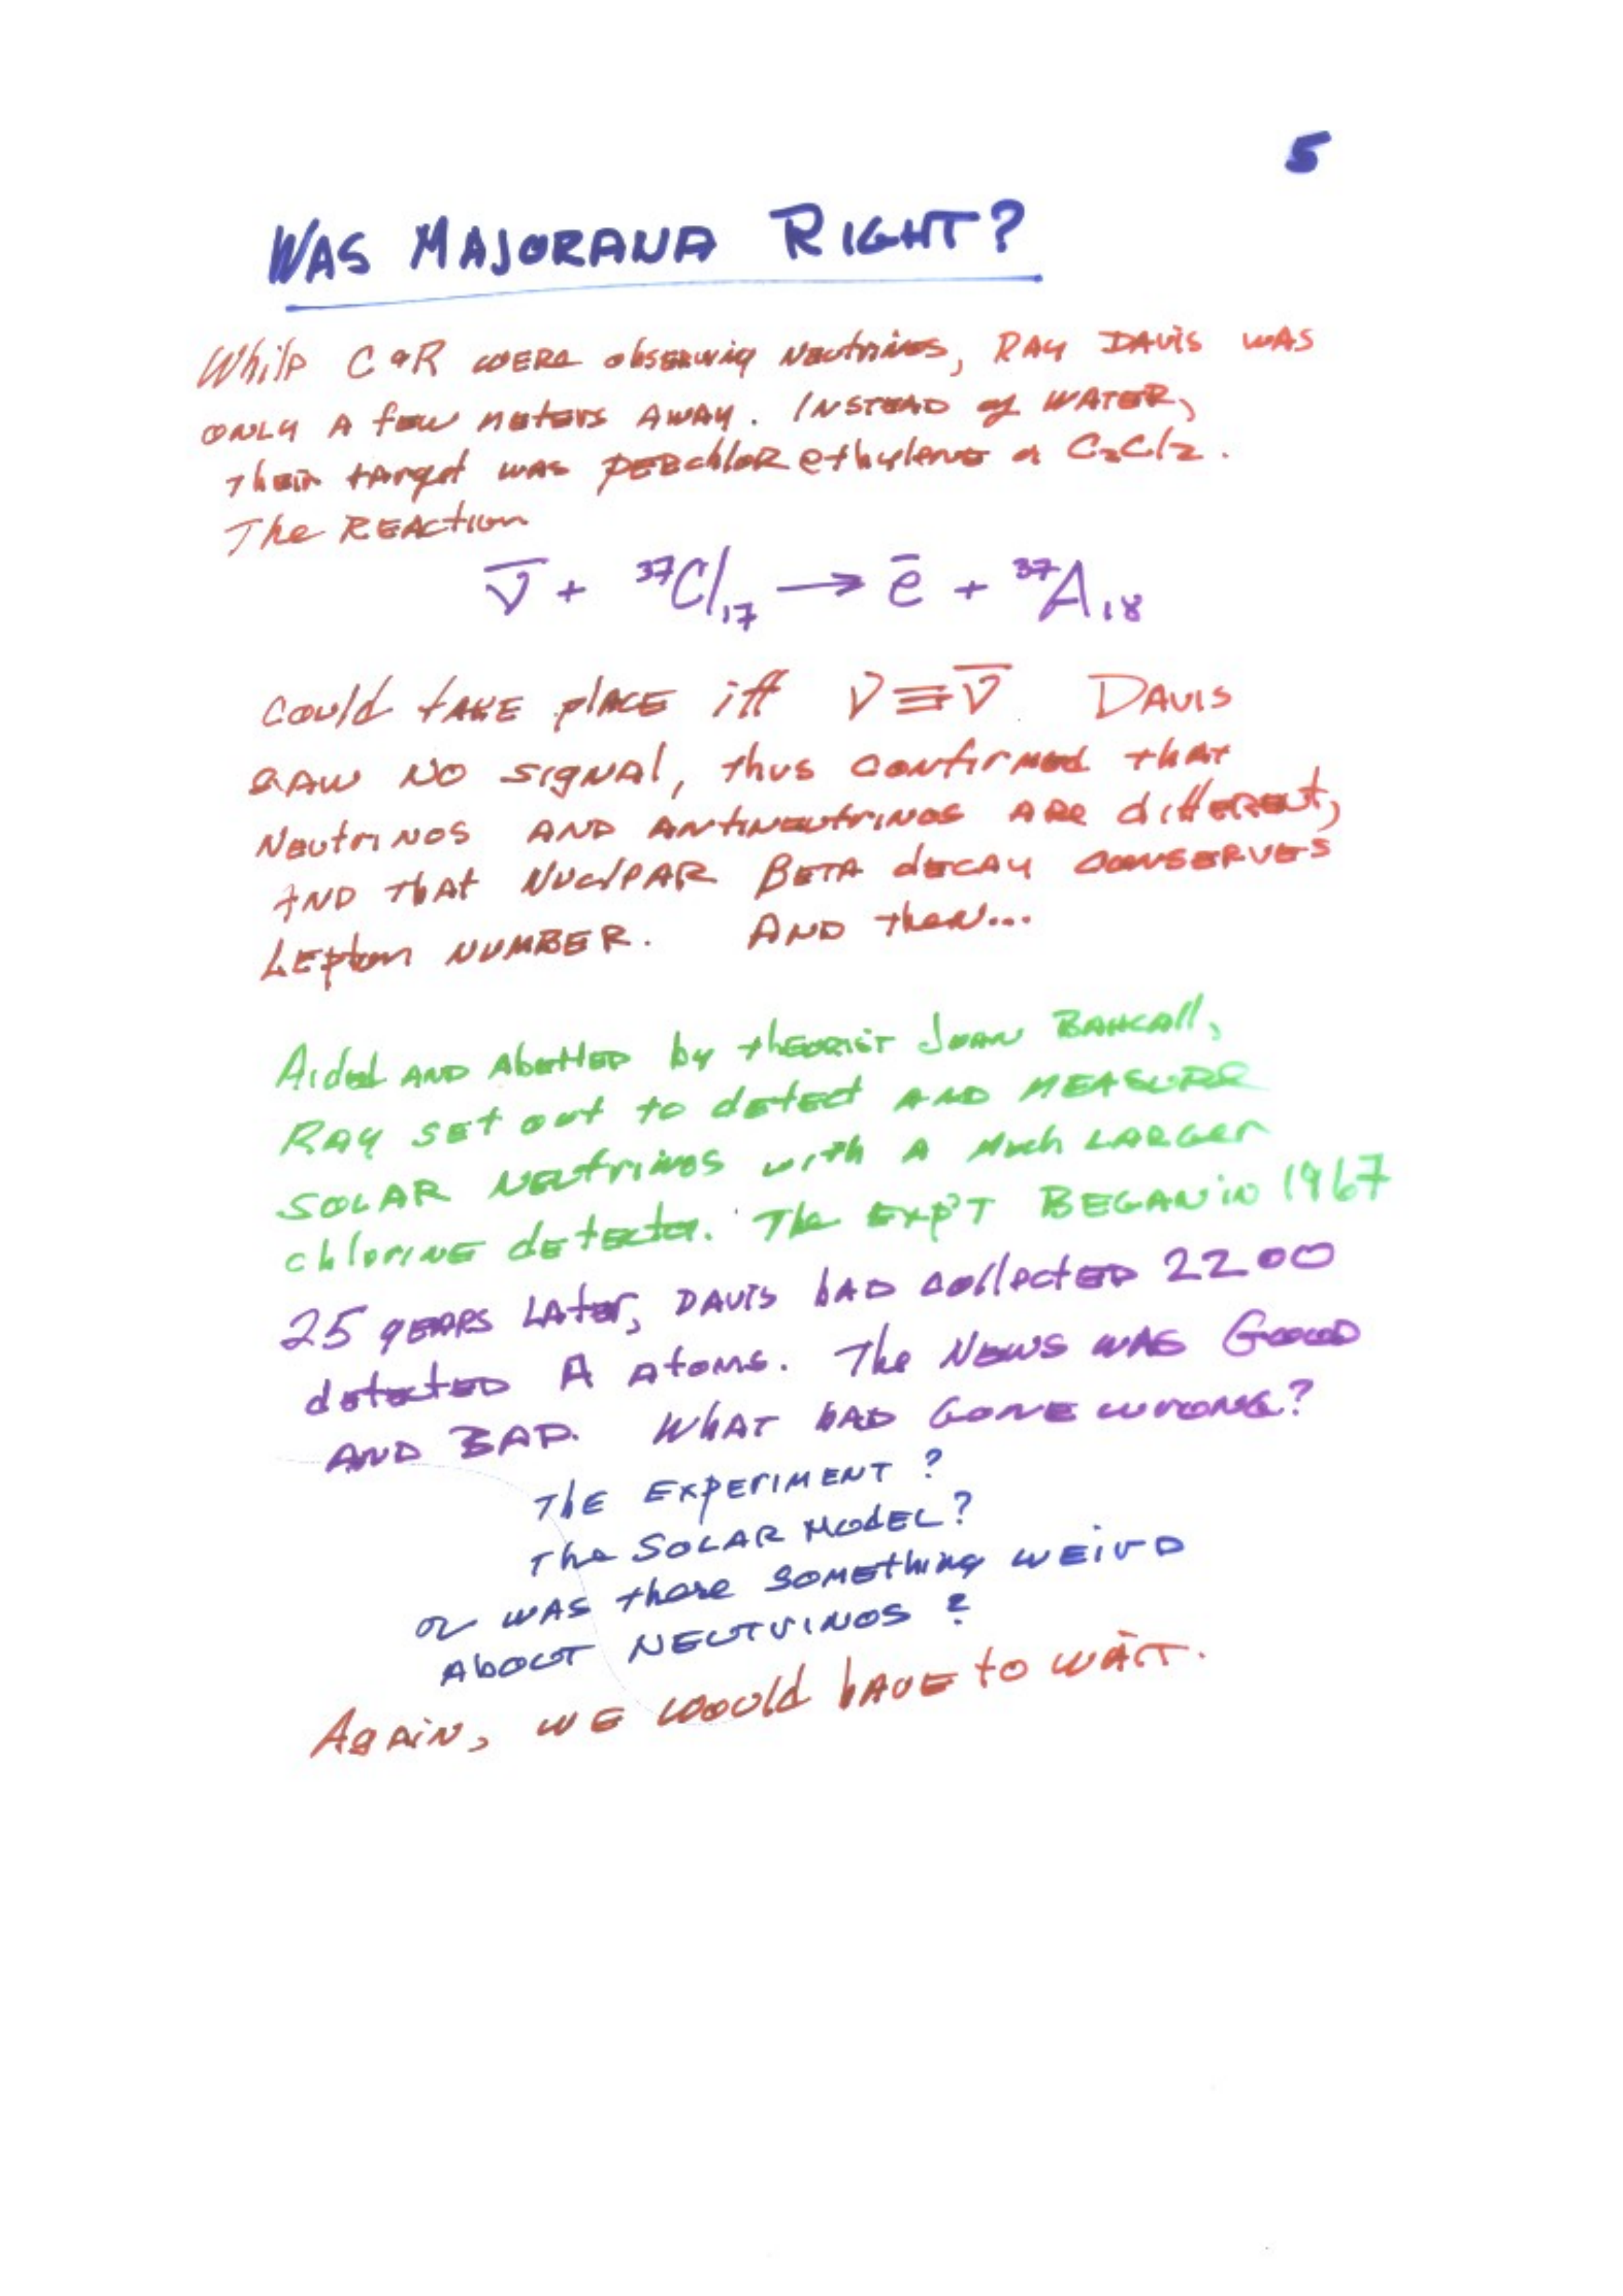 5
WAS MAJORANA RIGHT?
While C&R WERE observing Neutrinos, RAY DAVIS WAS
ONLY A few meters AWAY. INSTEAD of WATER,
Their target was PERchlorethylene or C₂Cl₂.
The REAction
ν̅ + ³⁷Cl₁₇ → e̅ + ³⁷A₁₈
Could TAKE plACE iff ν≡ν̅. DAVIS
SAW NO SIGNAl, thus confirmed that
Neutrinos AND Antineutrinos ARE diffERENt,
AND that NUCleAR BETA dECAY CONSERVES
LEpton NUMBER. AND then...
Aided AND AbettED by thEORIST JOHN BAHCAll,
RAY SEt out to dEtEct AND MEASURE
SOLAR NEUtrinos with A Much LARGEr
chlorINE dEtEctor. The Exp'T BEGAN in 1967
25 YEARS LAtEr, DAVIS hAD collectED 2200
dEtectED A Atoms. The NEWS WAS GOOD
AND BAD. WhAT hAD GONE wrONG?
ThE EXPErIMENT?
The SOLAR MOdEL?
or WAS there SOMEthing WEirD
AboUT NEUTrINOS?
AgAiN, WE woulD hAVE to WAIT.